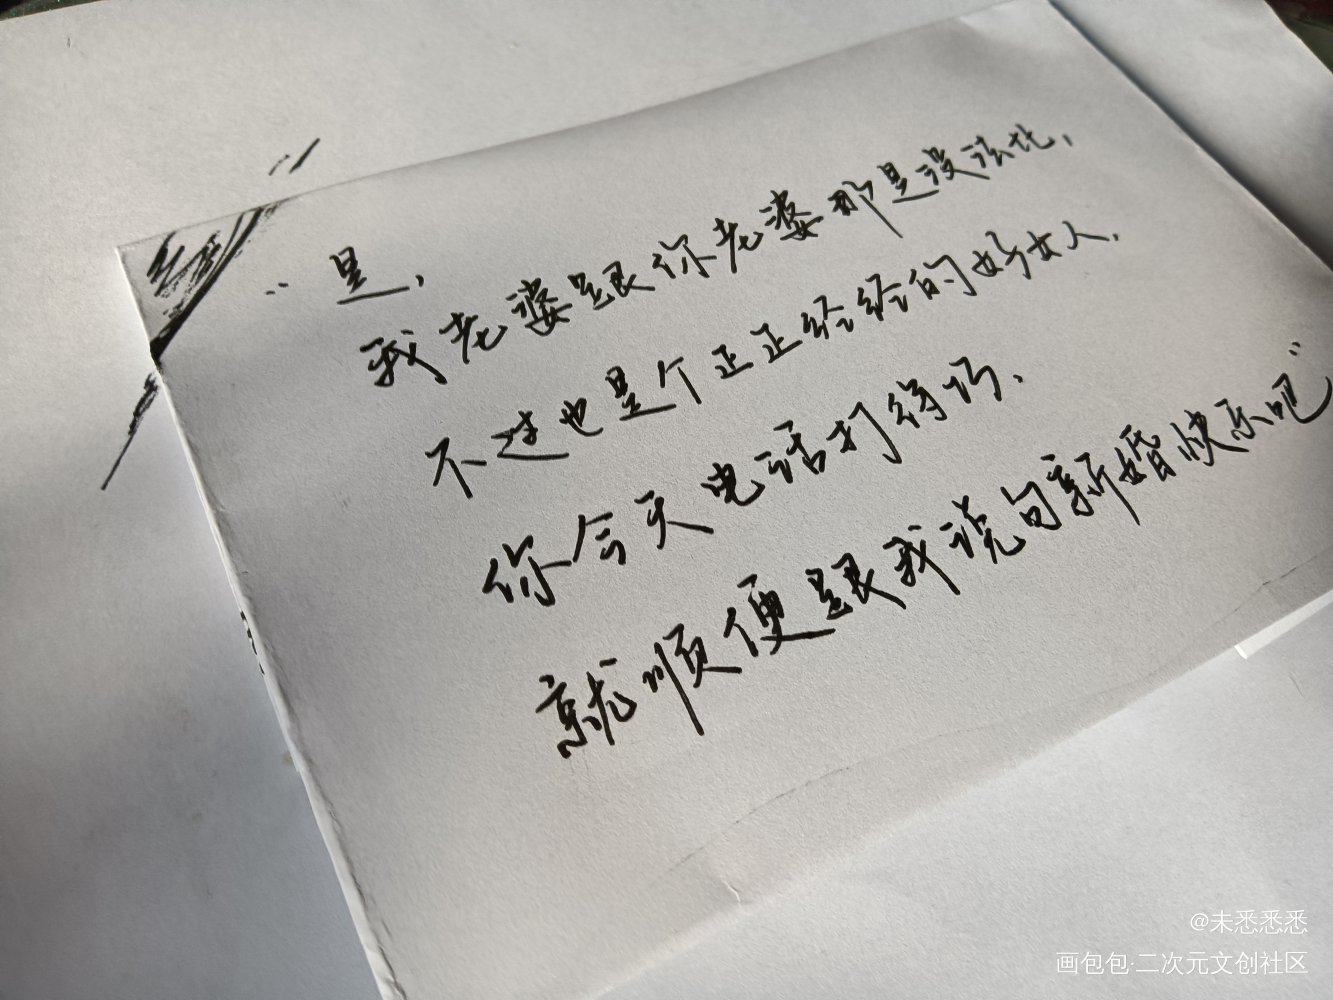 “是，
我老婆跟你老婆那是没法比，
不过也是个正正经经的好女人，
你今天电话打得巧，
就顺便跟我说句新婚快乐吧”
@未悉悉悉
画包包·二次元文创社区